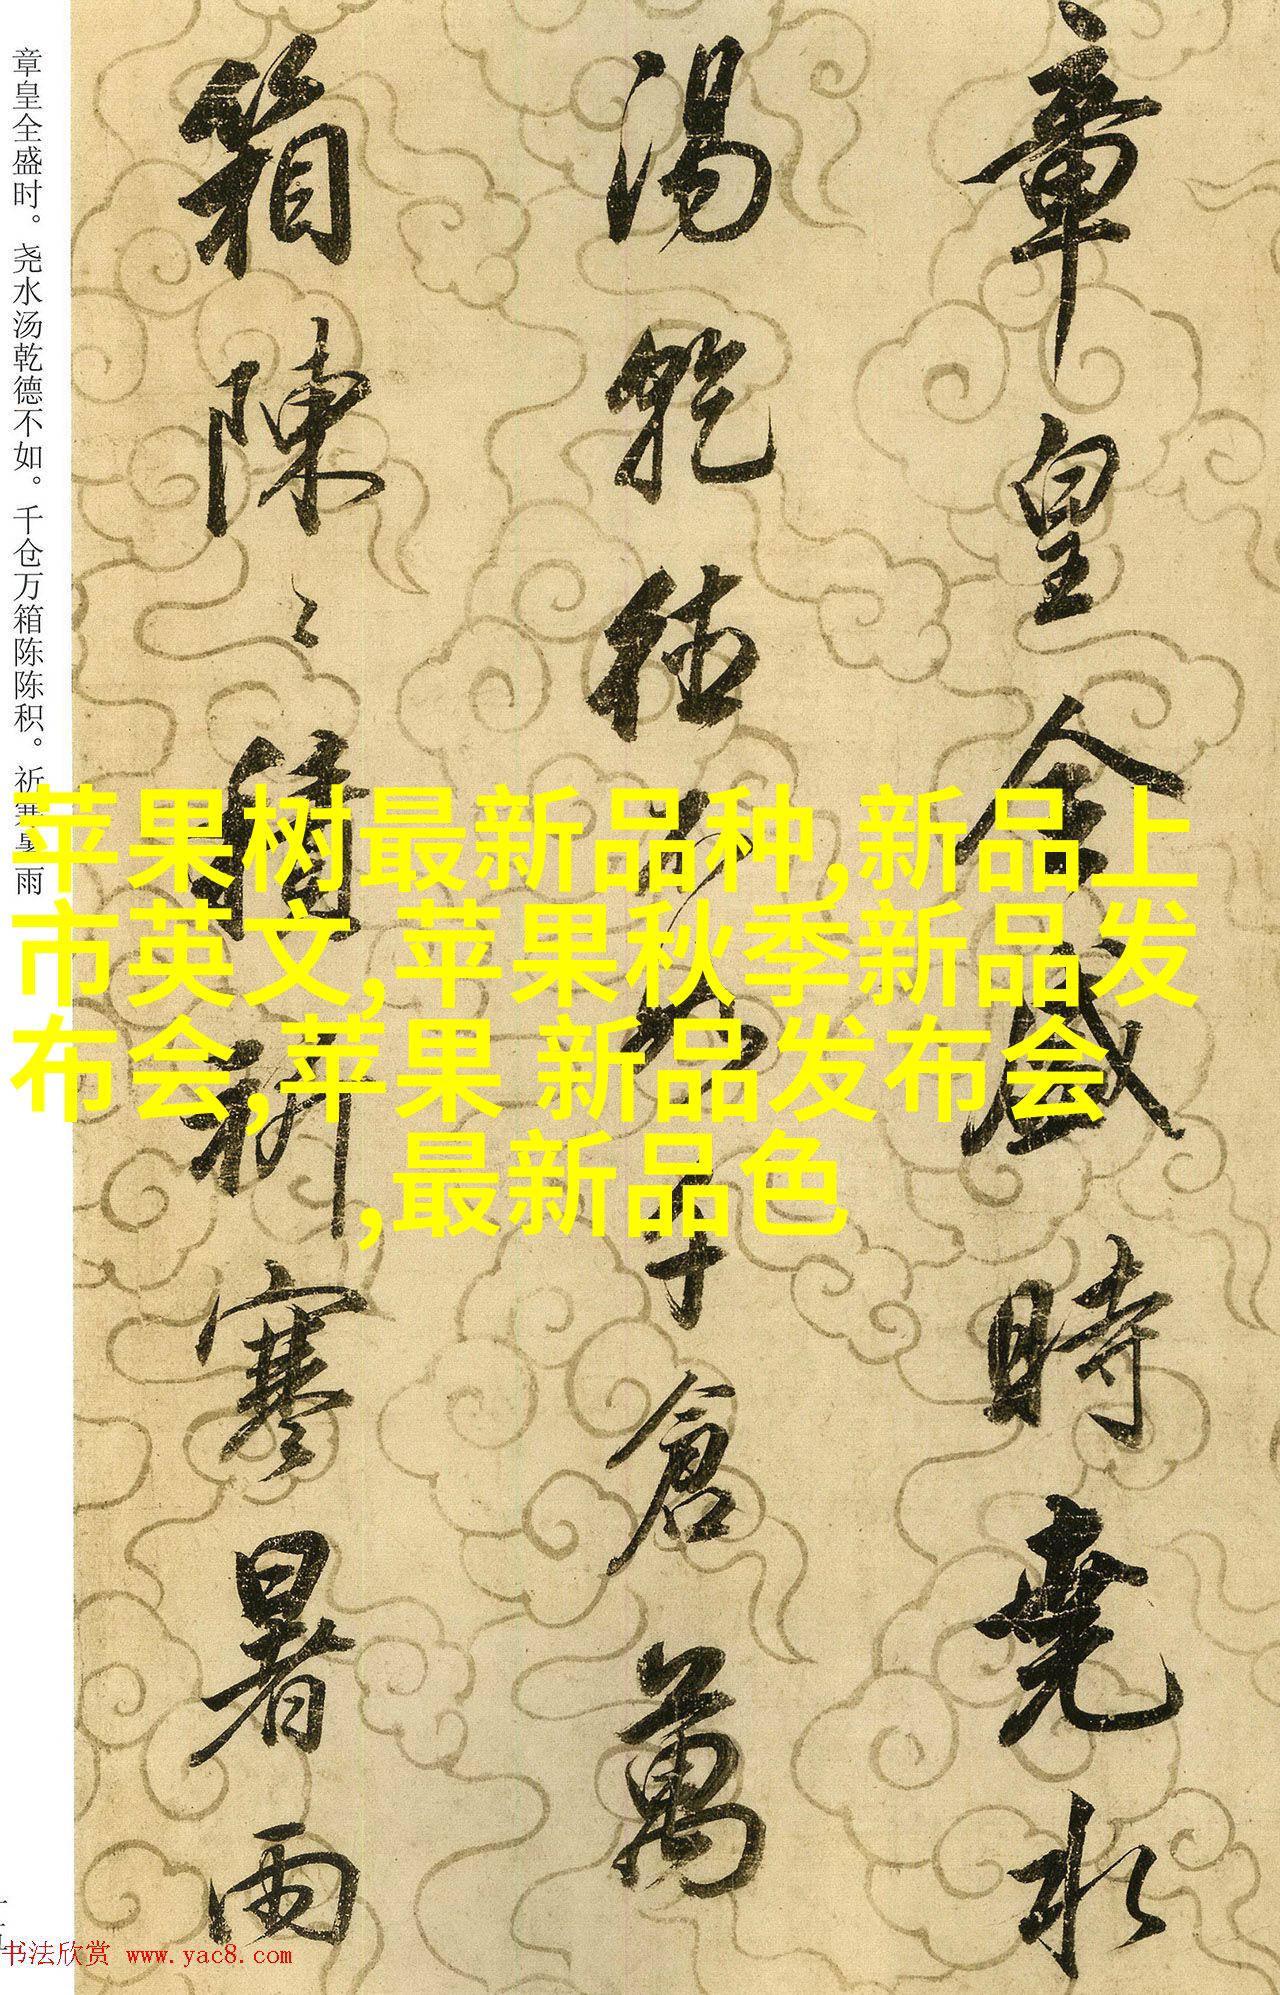 章皇全盛時堯水
湯乾德不如千倉萬
箱陳〻積祈寒暑雨
章皇全盛时。尧水汤乾德不如。千仓万箱陈陈积。祈寒暑雨
苹果树最新品种,新品上
市英文,苹果秋季新品发
布会,苹果 新品发布会
,最新品色
书法欣赏 www.yac8.com